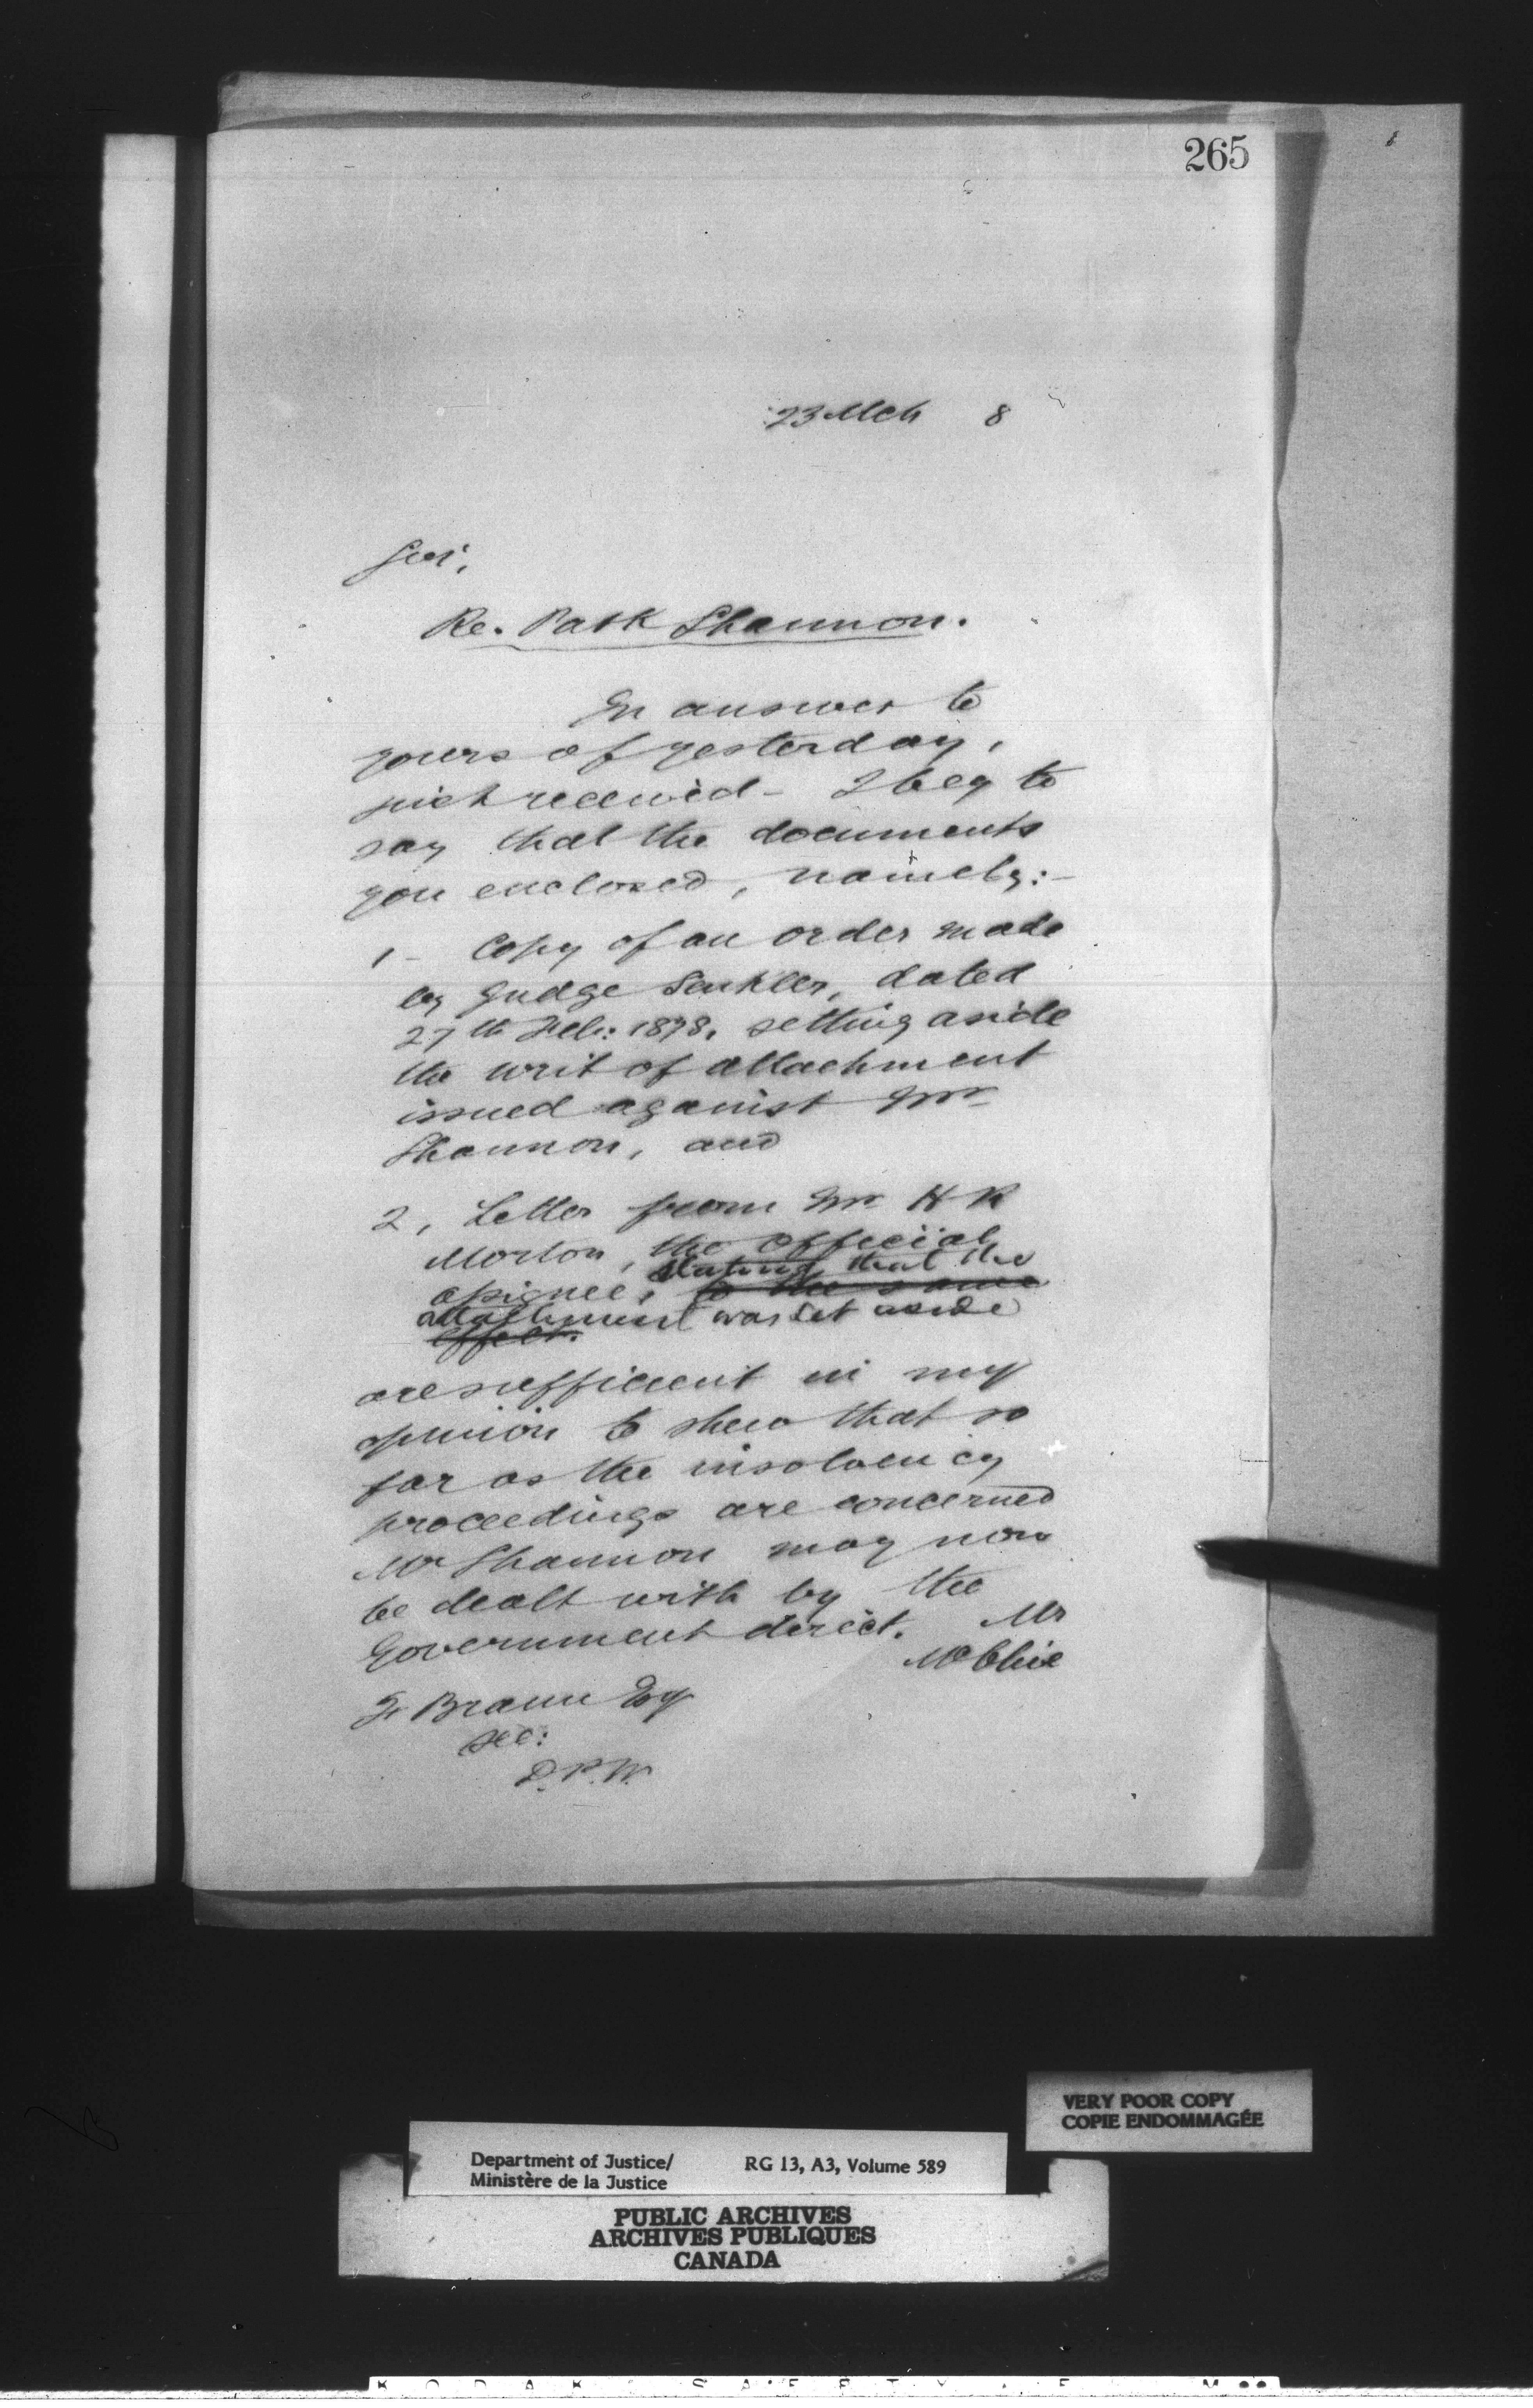 265
23 Mch 8
Sir,
Re. Patk Shannon.
In answer to
yours of yesterday,
just received - I beg to
say that the documents
you enclosed, namely:-
1 - Copy of an order made
by Judge Senkler, dated
27th Feb: 1878, setting aside
the writ of attachment
issued against Mr
Shannon, and
2, Letter from Mr H R
Morton, the official
stating that the
assignee, to the same
attachment was set aside
effect.
are sufficient in my
opinion to shew that so
far as the insolvency
proceedings are concerned
Mr Shannon may now
be dealt with by the
Government direct. Mr
F Braun Esq
Sec:
D.P.W.
VERY POOR COPY
COPIE ENDOMMAGÉE
Department of Justice/ RG 13, A3, Volume 589
Ministère de la Justice
PUBLIC ARCHIVES
ARCHIVES PUBLIQUES
CANADA